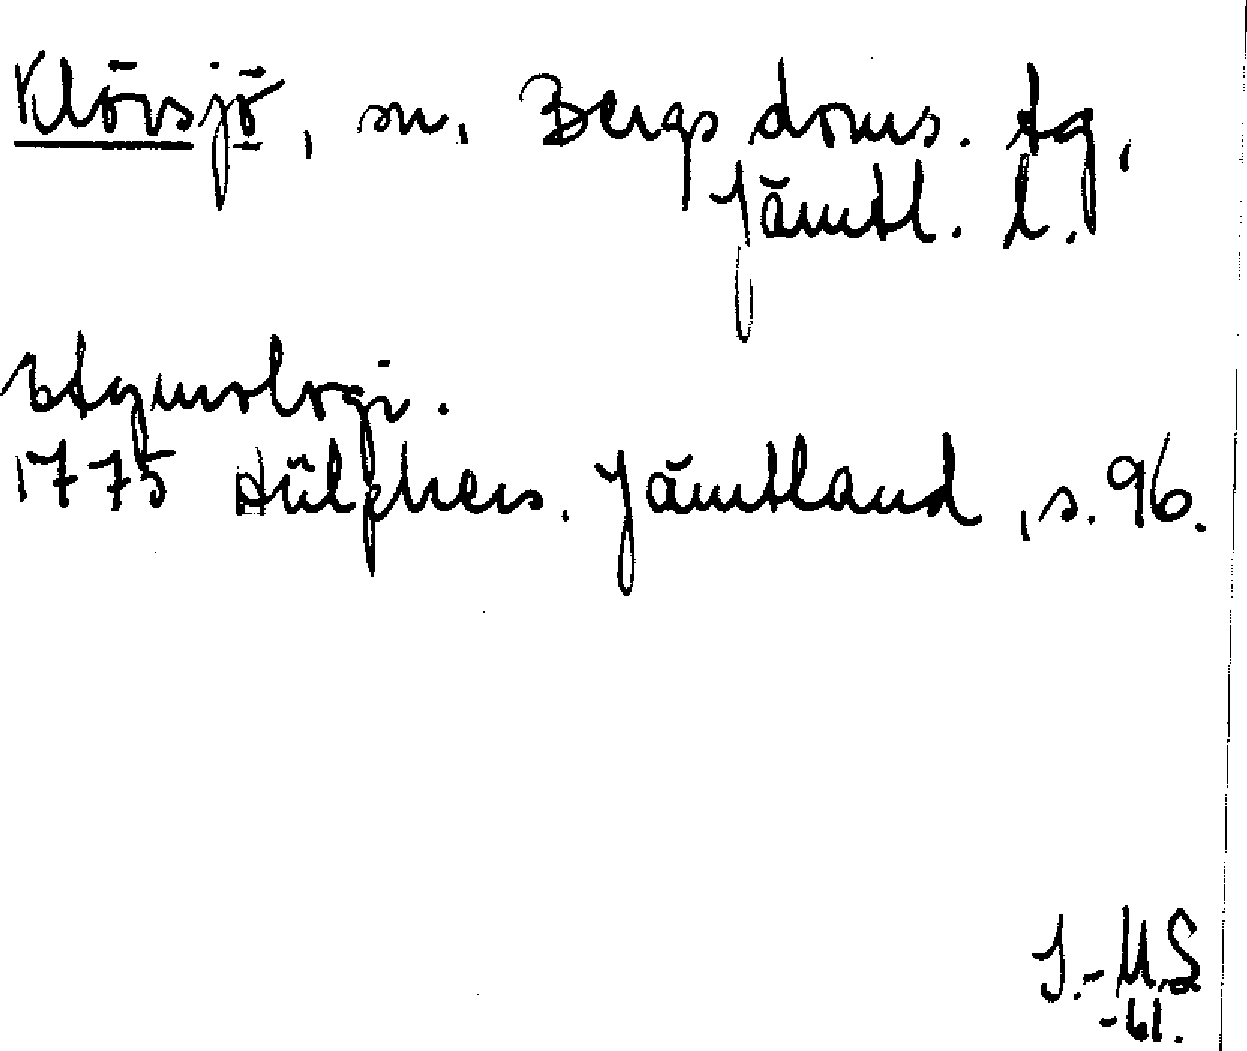 Klövsjö, sn. Bergs doms. tg,
Jämtl. l.
Etymologi.
1775 Hülphers. Jämtland, s. 96.
I.-M.S
-61.